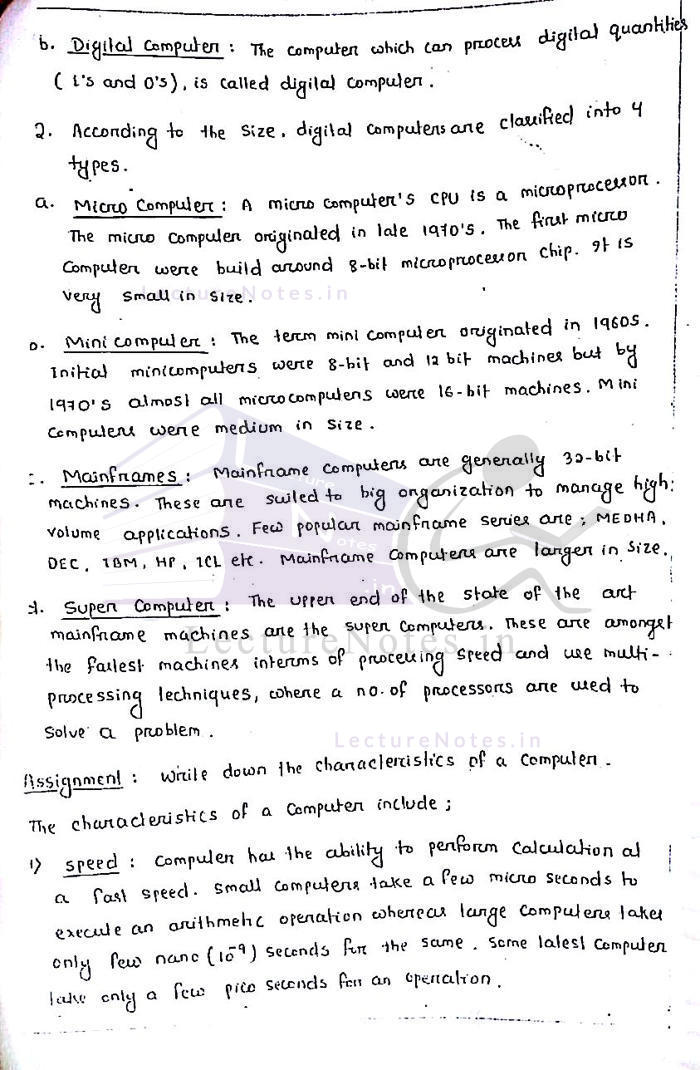 b. Digital Computer : The computer which can process digital quantities
( 1's and 0's), is called digital computer.
2. According to the size. digital computers are classified into 4
types.
a. Micro Computer : A micro computer's CPU is a microprocessor.
The micro computer originated in late 1970's. The first micro
Computer were build around 8-bit microprocessor chip. It is
very small in size.
LectureNotes.in
b. Mini computer : The term mini computer originated in 1960s.
Initial minicomputers were 8-bit and 12 bit machines but by
1970's almost all microcomputers were 16-bit machines. Mini
Computers were medium in size.
c. Mainframes : Mainframe computers are generally 32-bit
machines. These are suited to big organization to manage high
volume applications. Few popular mainframe series are ; MEDHA,
DEC, IBM, HP, ICL etc. Mainframe Computers are larger in size.
d. Super Computer : The upper end of the state of the art
mainframe machines are the super computers. These are amongst
LectureNotes.in
the fastest machines interms of processing speed and use multi-
processing techniques, where a no. of processors are used to
Solve a problem.
LectureNotes.in
Assignment : Write down the characteristics of a computer.
The characteristics of a computer include ;
1) speed : Computer has the ability to perform calculation at
a fast speed. small computers take a few micro seconds to
execute an arithmetic operation whereas large computers takes
only few nano (10⁻⁹) seconds for the same. some latest computer
take only a few pico seconds for an operation.